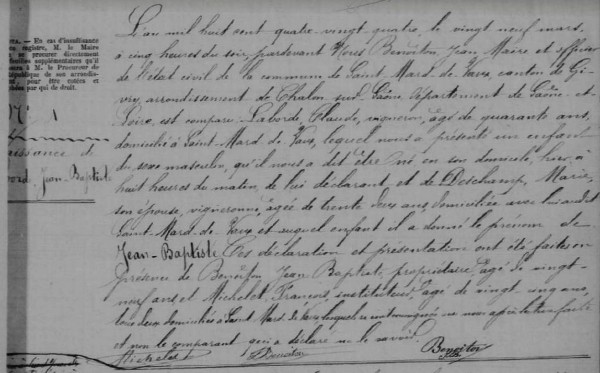 NOTA. — En cas d'insuffisance
registre, M. le Maire
se procurer directement
supplémentaires qu'il
à M. le Procureur de
République de son arrondis-
pour être cotées et
par qui de droit.
Naissance de
Jean-Baptiste
L'an mil huit cent quatre-vingt-quatre, le vingt neuf mars,
à cinq heures du soir, pardevant Nous Benoiton, Jean Maire et officier
de l'état civil de la commune de Saint-Mard-de-Vaux, canton de Gi-
vry, arrondissement de Chalon-sur-Saône, département de Saône-et-
Loire, est comparu Laborde, Claude, vigneron, âgé de quarante ans,
domicilié à Saint-Mard-de-Vaux, lequel nous a présenté un enfant
du sexe masculin, qu'il nous a dit être né en son domicile, hier, à
huit heures du matin, de lui déclarant, et de Deschamp, Marie,
son épouse, vigneronne, âgée de trente deux ans, domiciliée avec lui audit
Saint-Mard-de-Vaux et auquel enfant il a donné le prénom de
Jean-Baptiste. Ces déclaration et présentation ont été faites en
présence de Benoiton, Jean Baptiste, propriétaire, âgé de vingt-
neuf ans et Michelet, François, instituteur, âgé de vingt cinq ans,
tous deux domiciliés à Saint-Mard-de-Vaux lesquels ont signé avec nous après lecture faite
et non le comparant qui a déclaré ne le savoir.
Michelet Benoiton Benoiton